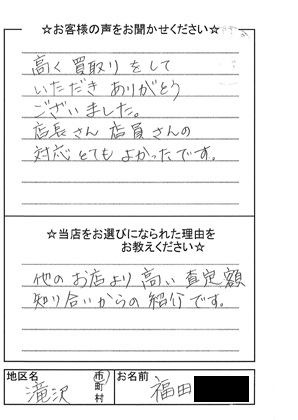 ☆お客様の声をお聞かせください☆
高く買取りをして
いただきありがとう
ございました。
店長さん 店員さんの
対応とてもよかったです。
☆当店をお選びになられた理由を
お教えください☆
他のお店より高い査定額
知り合いからの紹介です。
地区名 滝沢 市町村 お名前 福田